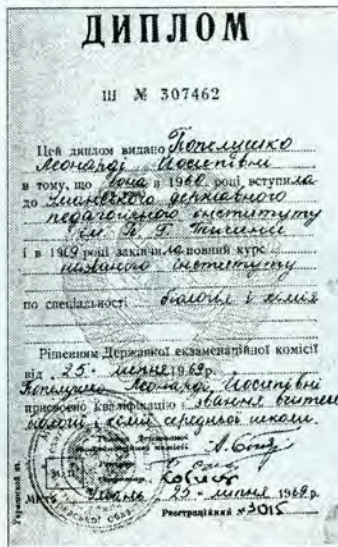 ДИПЛОМ
Ш № 307462
Цей диплом видано Попелушко
Леонарді Йосипівні
в тому, що вона в 1960 році вступила
до Уманського державного
педагогічного інституту
ім. П. Г. Тичини
і в 1969 році закінчила повний курс
названого інституту
по спеціальності біологія і хімія
Рішенням Державної екзаменаційної комісії
від 25 липня 1969 р.
Попелушко Леонарді Йосипівні
присвоєно кваліфікацію і звання вчителя
біології і хімії середньої школи.
Голова Державної
екзаменаційної комісії
Ректор
Секретар
М.П. Умань, 25 липня 1969 р.
Реєстраційний № 3015